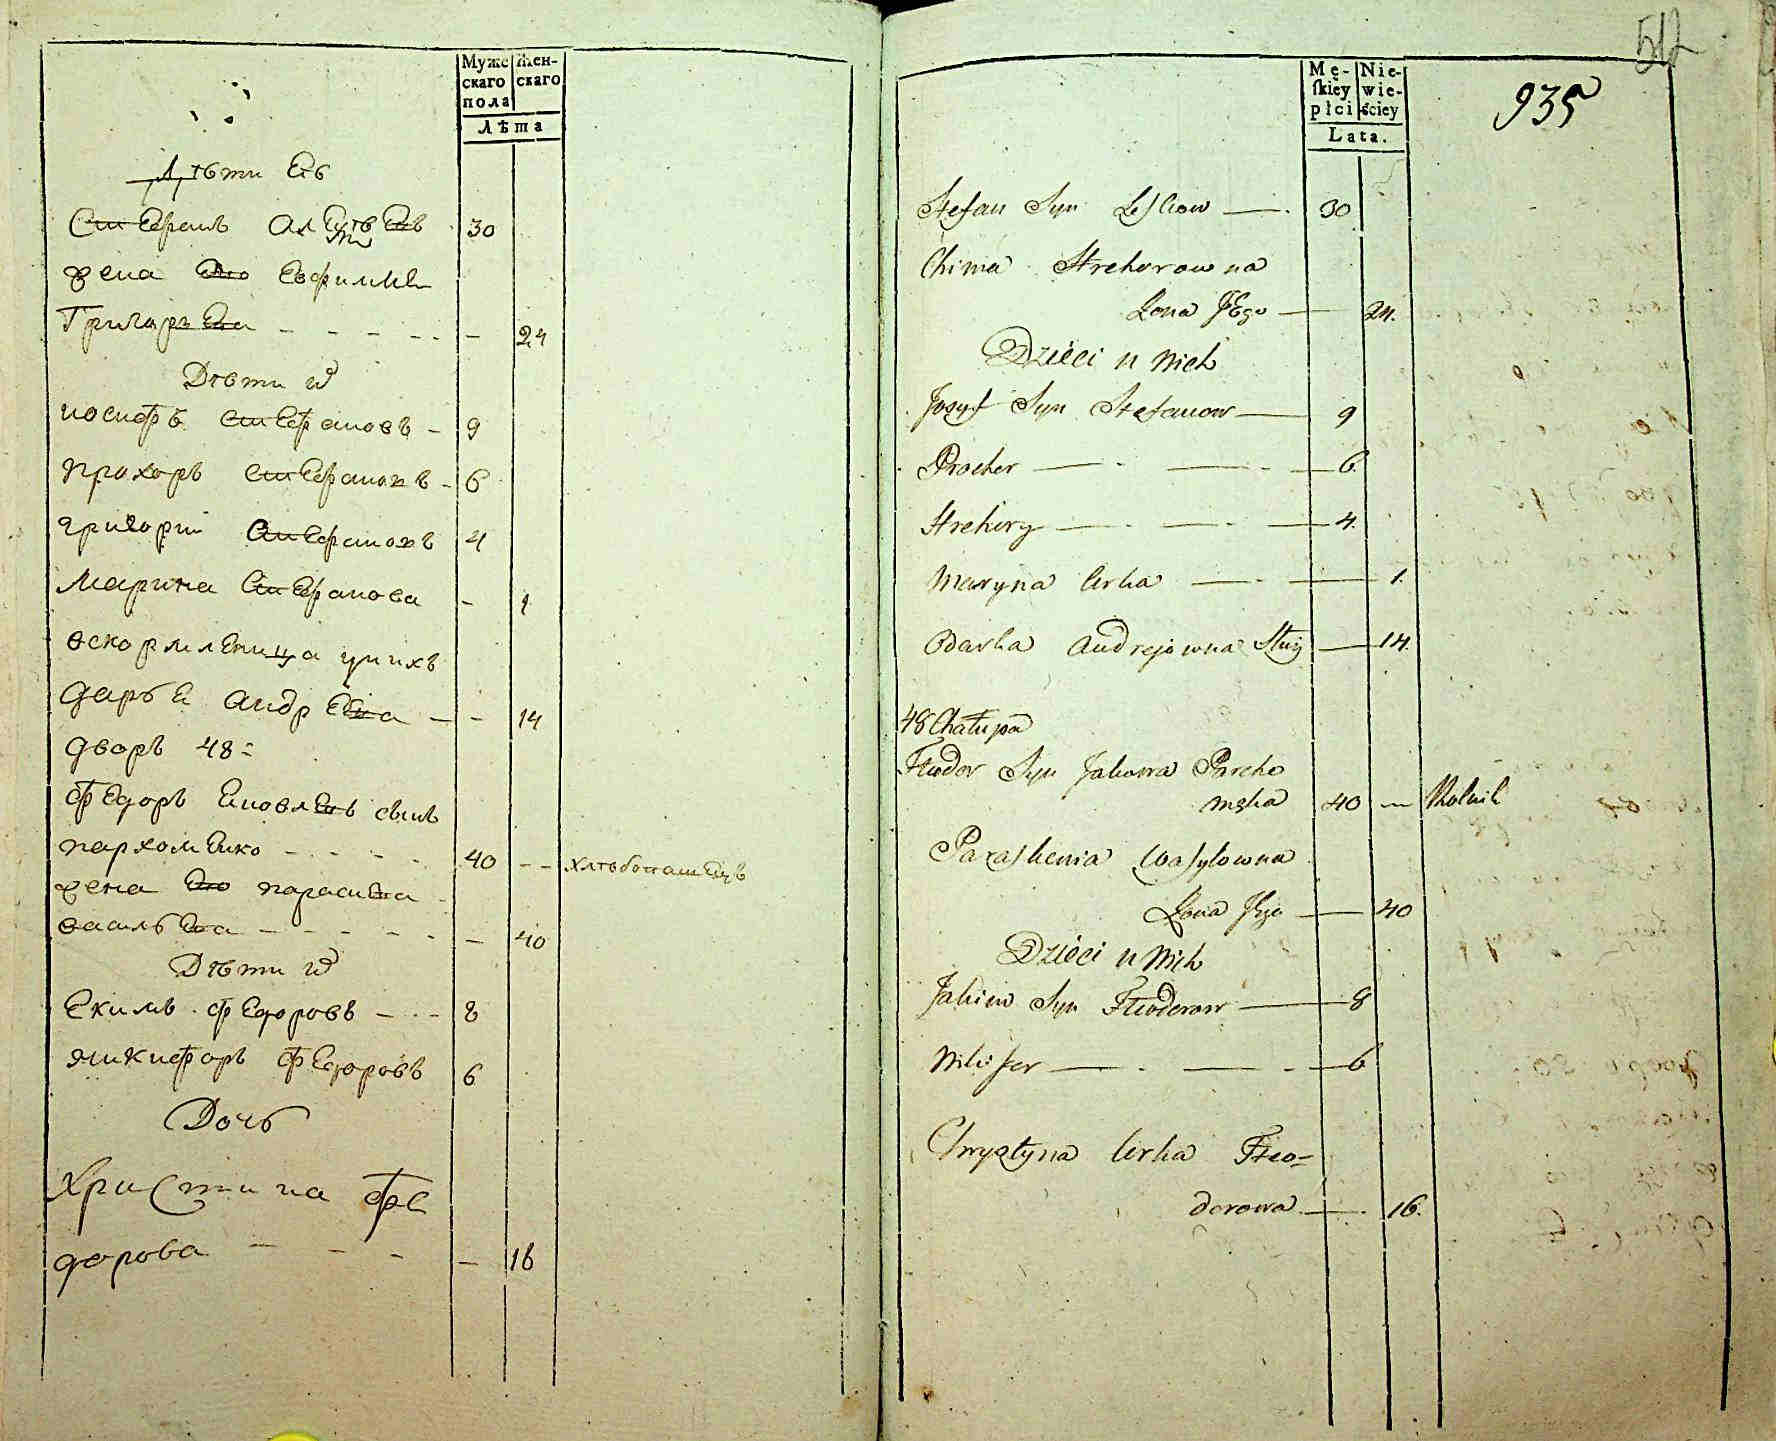 Муже скаго пола
Жен- скаго
Лѣта
Дѣти Ея
Стефанъ Алексѣевъ 30
жена Его Евфимия
Григорьева 24
Дѣти ихъ
иосифъ стефановъ 9
прохоръ стефановъ 6
григорий Стефановъ 4
Марина Стефанова 1
вскормленица у нихъ
дарья андреева 14
дворъ 48
федоръ яковлевъ сынъ
пархоменко 40 хлѣбопашецъ
жена Его параскева
васильева 40
Дѣти ихъ
Екимъ федоровъ 8
никифоръ федоровъ 6
Дочь
Христина фе
дорова 16
512
935
Mę- skiey płci
Nie- wie- ściey
Lata.
Stefan Syn 30
Chima Hrehorowna
Żona Jego 24.
Dzieci u Nich
Jozyf Syn Stefanow 9
Procher 6.
Hrehory 4.
Maryna Curka 1.
Odarka Andrejowna Służ 14.
48 Chałupa
Fteodor Syn Jakowa Parcho
męka 40 Rolnik
Paraskenia Wasylowna
Żona Jego 40
Dzieci u Nich
Jakim Syn Fteoderow 8
Nikifer 6
Chrystyna Curka Fteo-
dorowa 16.